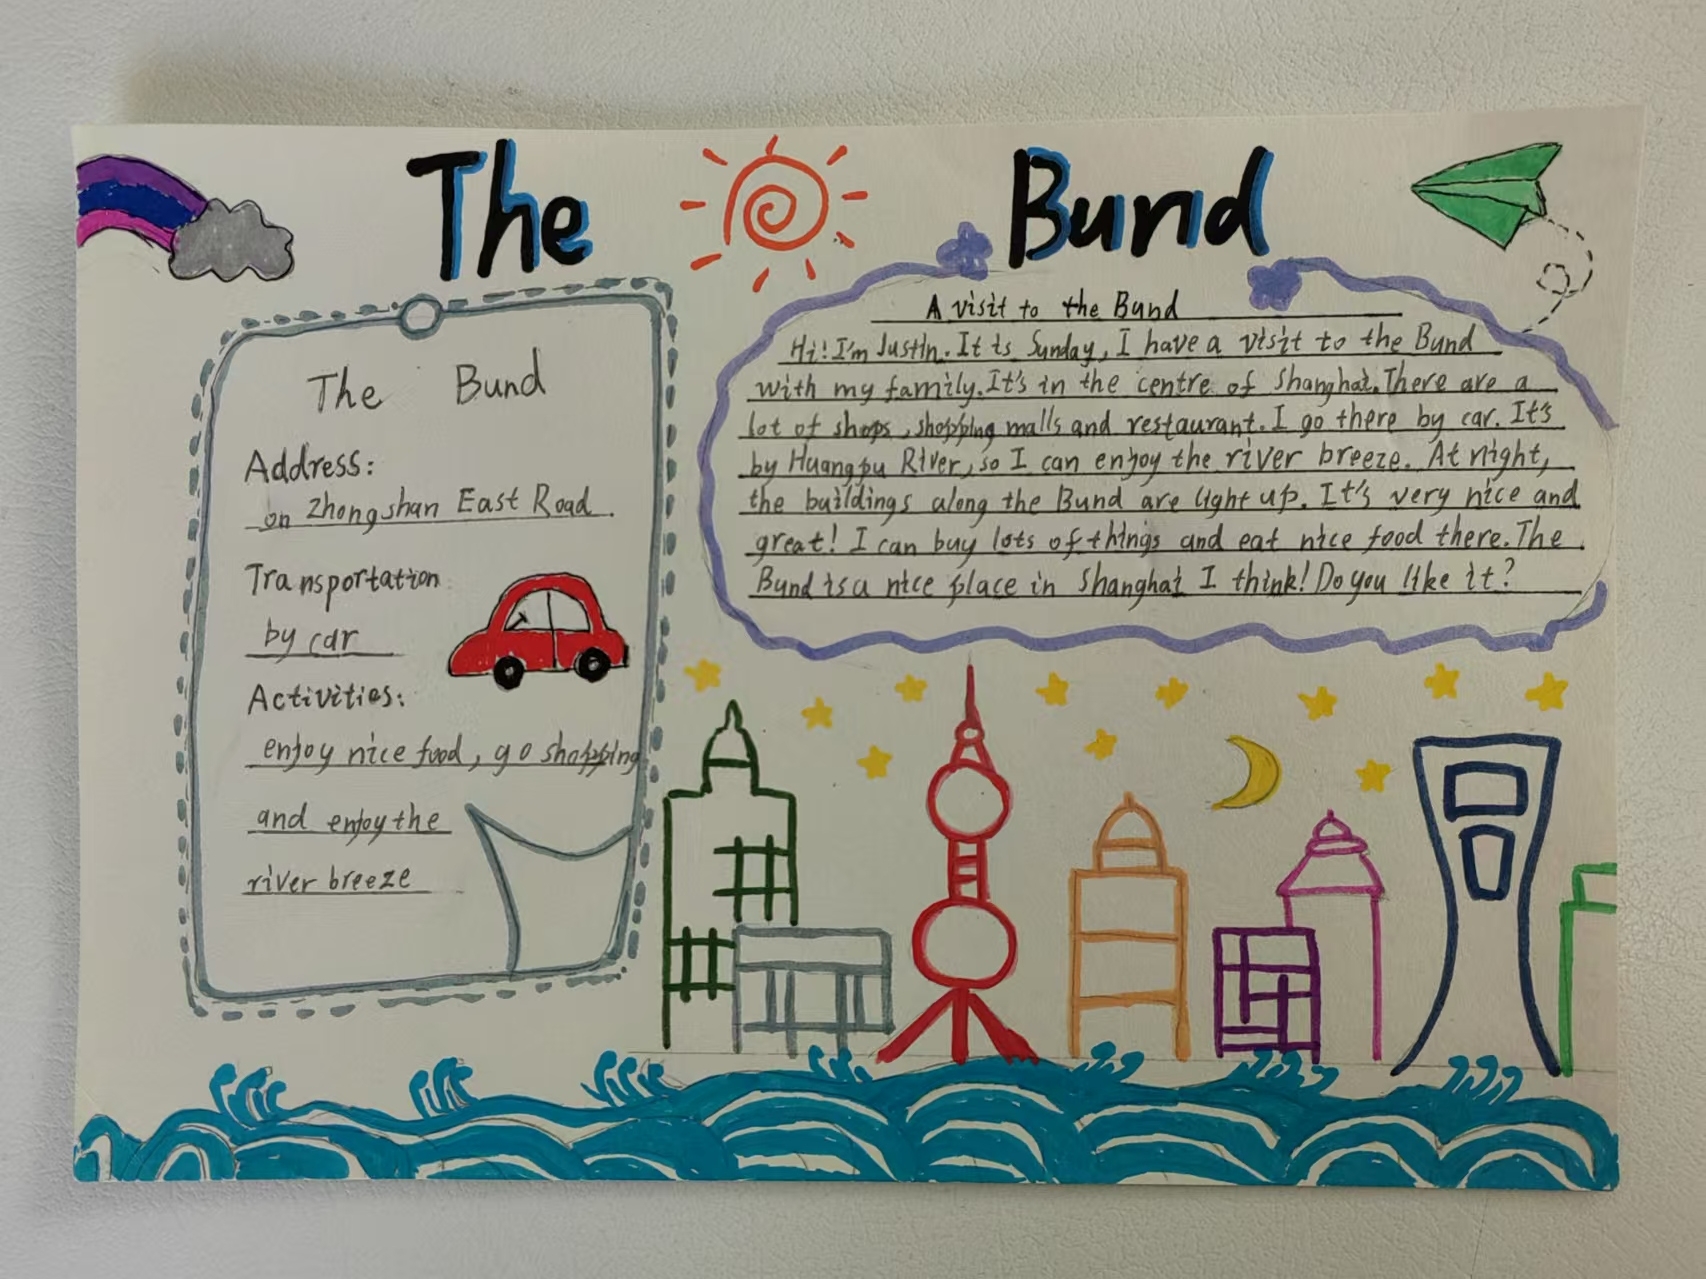 The Bund
The Bund
Address:
on Zhongshan East Road.
Transportation
by car
Activities:
enjoy nice food, go shopping
and enjoy the
river breeze
A visit to the Bund
Hi! I'm Justin. It is Sunday, I have a visit to the Bund
with my family. It's in the centre of Shanghai. There are a
lot of shops, shopping malls and restaurant. I go there by car. It's
by Huangpu River, so I can enjoy the river breeze. At night,
the buildings along the Bund are light up. It's very nice and
great! I can buy lots of things and eat nice food there. The
Bund is a nice place in Shanghai I think! Do you like it?